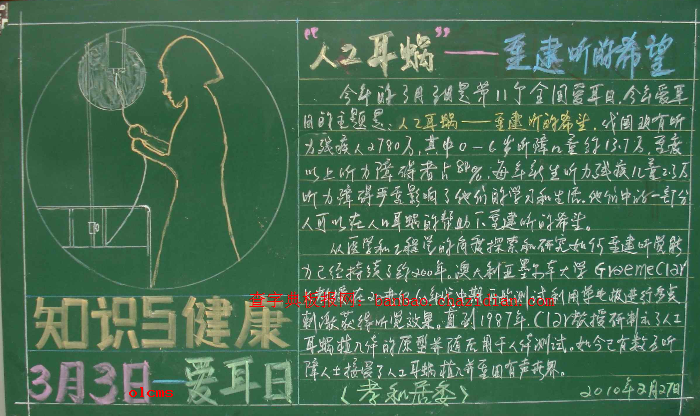 "人工耳蜗"——重建听的希望
今年的3月3日是第11个全国爱耳日,今年爱耳
日的主题是:人工耳蜗——重建听的希望。我国现有听
力残疾人2780万,其中0-6岁听障儿童约13.7万,重度
以上听力障碍者占80%,每年新生听力残疾儿童2.3万
听力障碍严重影响了他们的学习和生活。他们中的一部分
人可以在人工耳蜗的帮助下重建听的希望。
从医学和工程学的角度探索和研究如何重建听觉能
力已经持续了约200年。澳大利亚墨尔本大学GraemeClar
刺激获得听觉效果。直到1987年,Clar教授研制出了人工
耳蜗植入体的原型并随后用于人体测试。如今已有数万听
障人士接受了人工耳蜗植入并重回有声世界。
(孝和居委)
2010年2月27日
知识与健康
3月3日—爱耳日